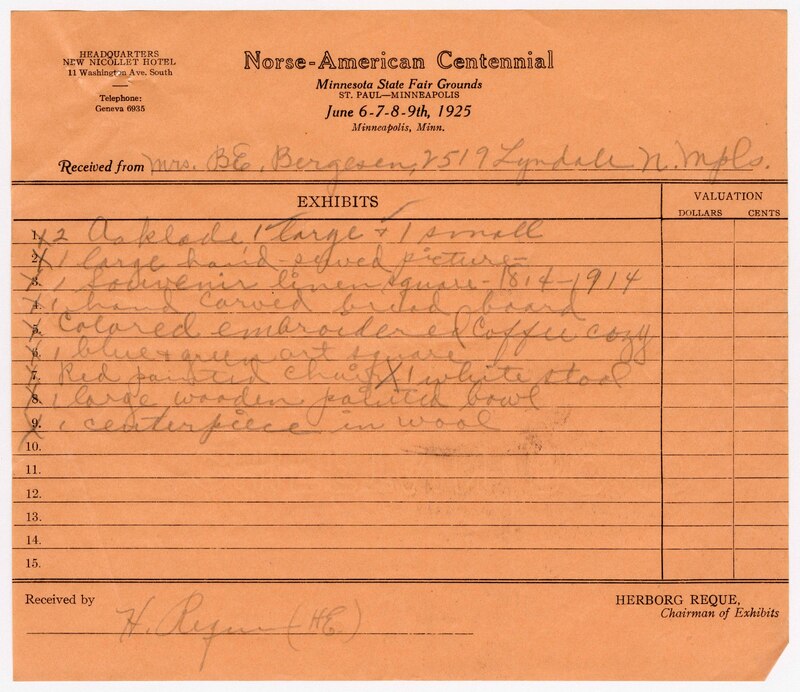 HEADQUARTERS
NEW NICOLLET HOTEL
11 Washington Ave. South
Telephone:
Geneva 6935
Norse-American Centennial
Minnesota State Fair Grounds
ST. PAUL—MINNEAPOLIS
June 6-7-8-9th, 1925
Minneapolis, Minn.
Received from Mrs. B.E. Bergesen, 2519 Lyndale N. Mpls.
EXHIBITS
VALUATION
DOLLARS CENTS
1. x 2 Asklade 1 large + 1 small
2. x 1 large hand-sewed picture-
3. x 1 souvenir linen square - 1814-1914
4. x 1 hand carved bread board
5. x Colored embroidered Coffee cozy
6. x 1 blue + green art square
7. x Red painted chair X 1 white stool
8. x 1 large wooden painted bowl
9. x 1 centerpiece in wool
10.
11.
12.
13.
14.
15.
Received by H. Reque (HE.)
HERBORG REQUE,
Chairman of Exhibits